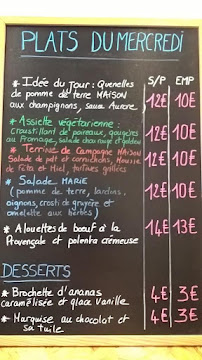 PLATS DU MERCREDI
S/P EMP
* Idée du Jour : Quenelles
de pomme de terre MAISON
aux champignons, sauce Aurore
12€ 10€
* Assiette végétarienne :
Croustillant de poireaux, gougères
au Fromage, salade chou rouge et
12€ 10€
* Terrine de Campagne MAISON
Salade de et cornichons, Mousse
de fêta et Miel, tartines grillées
12€ 10€
* Salade MARIE
(pomme de terre, lardons,
oignons, crosti de gruyère et
omelette aux herbes)
12€ 10€
* Alouettes de bœuf à la
Provençale et polenta crémeuse
14€ 13€
DESSERTS
* Brochette d'ananas
caramélisée et glace vanille
4€ 3€
* Marquise au chocolat et
sa tuile
4€ 3€